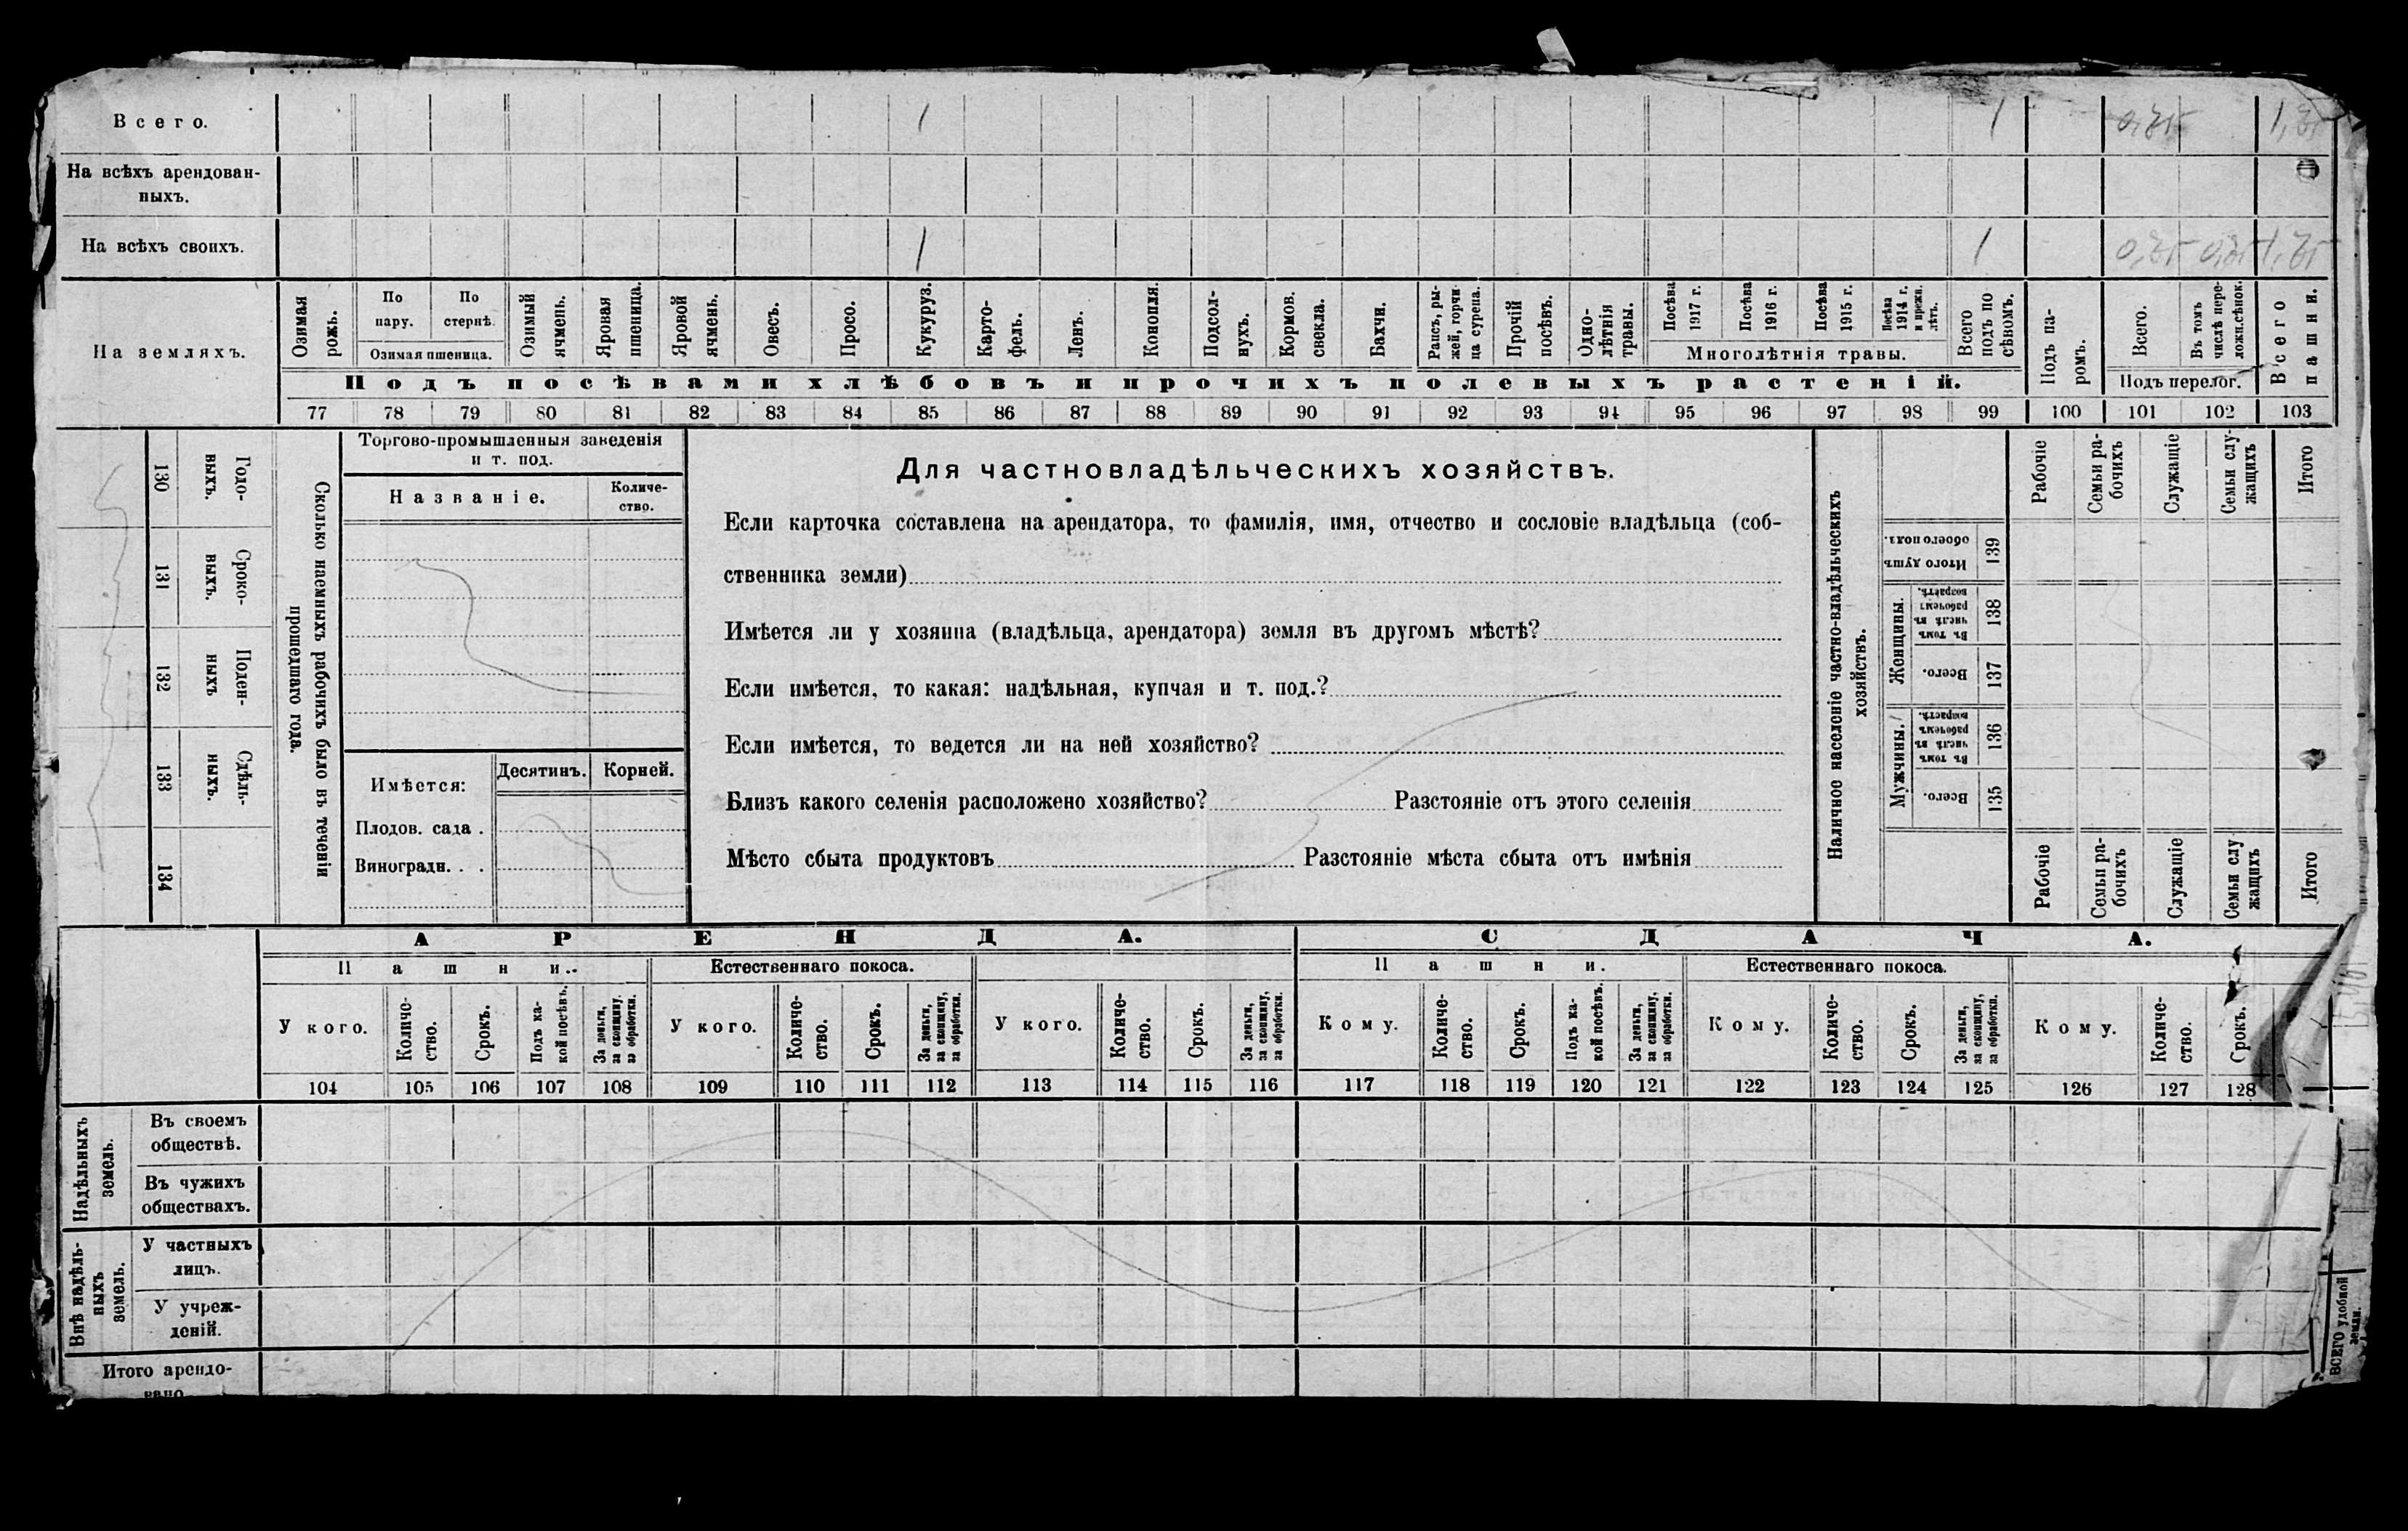 Всего. 1 1 0,75 1,75
На всѣхъ арендован-
ныхъ.
На всѣхъ своихъ. 1 1 0,75 0,75 1,75
На земляхъ.
Озимая рожь.
По пару.
По стернѣ.
Озимая пшеница.
Озимый ячмень.
Яровая пшеница.
Яровой ячмень.
Овесъ.
Просо.
Кукуруз.
Карто-
фель.
Ленъ.
Конопля.
Подсол-
нухъ.
Кормов. свекла.
Бахчи.
Рапсъ, ры-
жей, горчи-
ца сурепа.
Прочій посѣвъ.
Одно-
лѣтнія травы.
Посѣва 1917 г.
Посѣва 1916 г.
Посѣва 1915 г.
Посѣва 1914 г. и прежн. лѣтъ.
Многолѣтнія травы.
Всего подъ по
сѣвомъ.
Подъ па-
ромъ.
Всего.
Въ томъ числѣ пере-
ложн.сѣнок.
Подъ перелог.
Всего пашни.
Подъ посѣвами хлѣбовъ и прочихъ полевыхъ растеній.
77 78 79 80 81 82 83 84 85 86 87 88 89 90 91 92 93 94 95 96 97 98 99 100 101 102 103
130 Годо-
выхъ.
131 Сроко-
ныхъ.
132 Поден-
ныхъ
133 Сдѣль-
ныхъ.
134
Сколько наемныхъ рабочихъ было въ теченіи
прошедшаго года.
Торгово-промышленныя заведенія
и т. под.
Названіе.
Количе-
ство.
Имѣется:
Десятинъ.
Корней.
Плодов. сада .
Виноградн. . .
Для частновладѣльческихъ хозяйствъ.
Если карточка составлена на арендатора, то фамилія, имя, отчество и сословіе владѣльца (соб-
ственника земли)
Имѣется ли у хозяина (владѣльца, арендатора) земля въ другомъ мѣстѣ?
Если имѣется, то какая: надѣльная, купчая и т. под.?
Если имѣется, то ведется ли на ней хозяйство?
Близъ какого селенія расположено хозяйство? Разстояніе отъ этого селенія
Мѣсто сбыта продуктовъ Разстояніе мѣста сбыта отъ имѣнія
Наличное населеніе частно-владѣльческихъ
хозяйствъ.
Рабочіе
Семьи ра-
бочихъ
Служащіе
Семьи слу-
жащихъ
Итого
Итого душъ обоего пола. 139
Женщины.
Въ томъ числѣ въ рабочемъ возрастѣ. 138
Всего. 137
Мужчины.
Въ томъ числѣ въ рабочемъ возрастѣ. 136
Всего. 135
Рабочіе
Семьи ра-
бочихъ
Служащіе
Семьи слу
жащихъ
Итого
АРЕНДА.
СДАЧА.
Пашни.
Естественнаго покоса.
Пашни.
Естественнаго покоса.
У кого.
Количе-
ство.
Срокъ.
Подъ ка-
кой посѣвъ.
За деньги, за скопщину, за обработки.
У кого.
Количе-
ство.
Срокъ.
За деньги, за скопщину, за обработки.
У кого.
Количе-
ство.
Срокъ.
За деньги, за скопщину, за обработки.
Кому.
Количе-
ство.
Срокъ.
Подъ ка-
кой посѣвъ.
За деньги, за скопщину, за обработки.
Кому.
Количе-
ство.
Срокъ.
За деньги, за скопщину, за обработки.
Кому.
Количе-
ство.
Срокъ.
104 105 106 107 108 109 110 111 112 113 114 115 116 117 118 119 120 121 122 123 124 125 126 127 128
Надѣльныхъ
земель.
Въ своемъ
обществѣ.
Въ чужихъ
обществахъ.
Внѣ надѣль-
ныхъ
земель.
У частныхъ
лицъ.
У учреж-
деній.
Итого арендо-
вано
ВСЕГО удобной
земли.